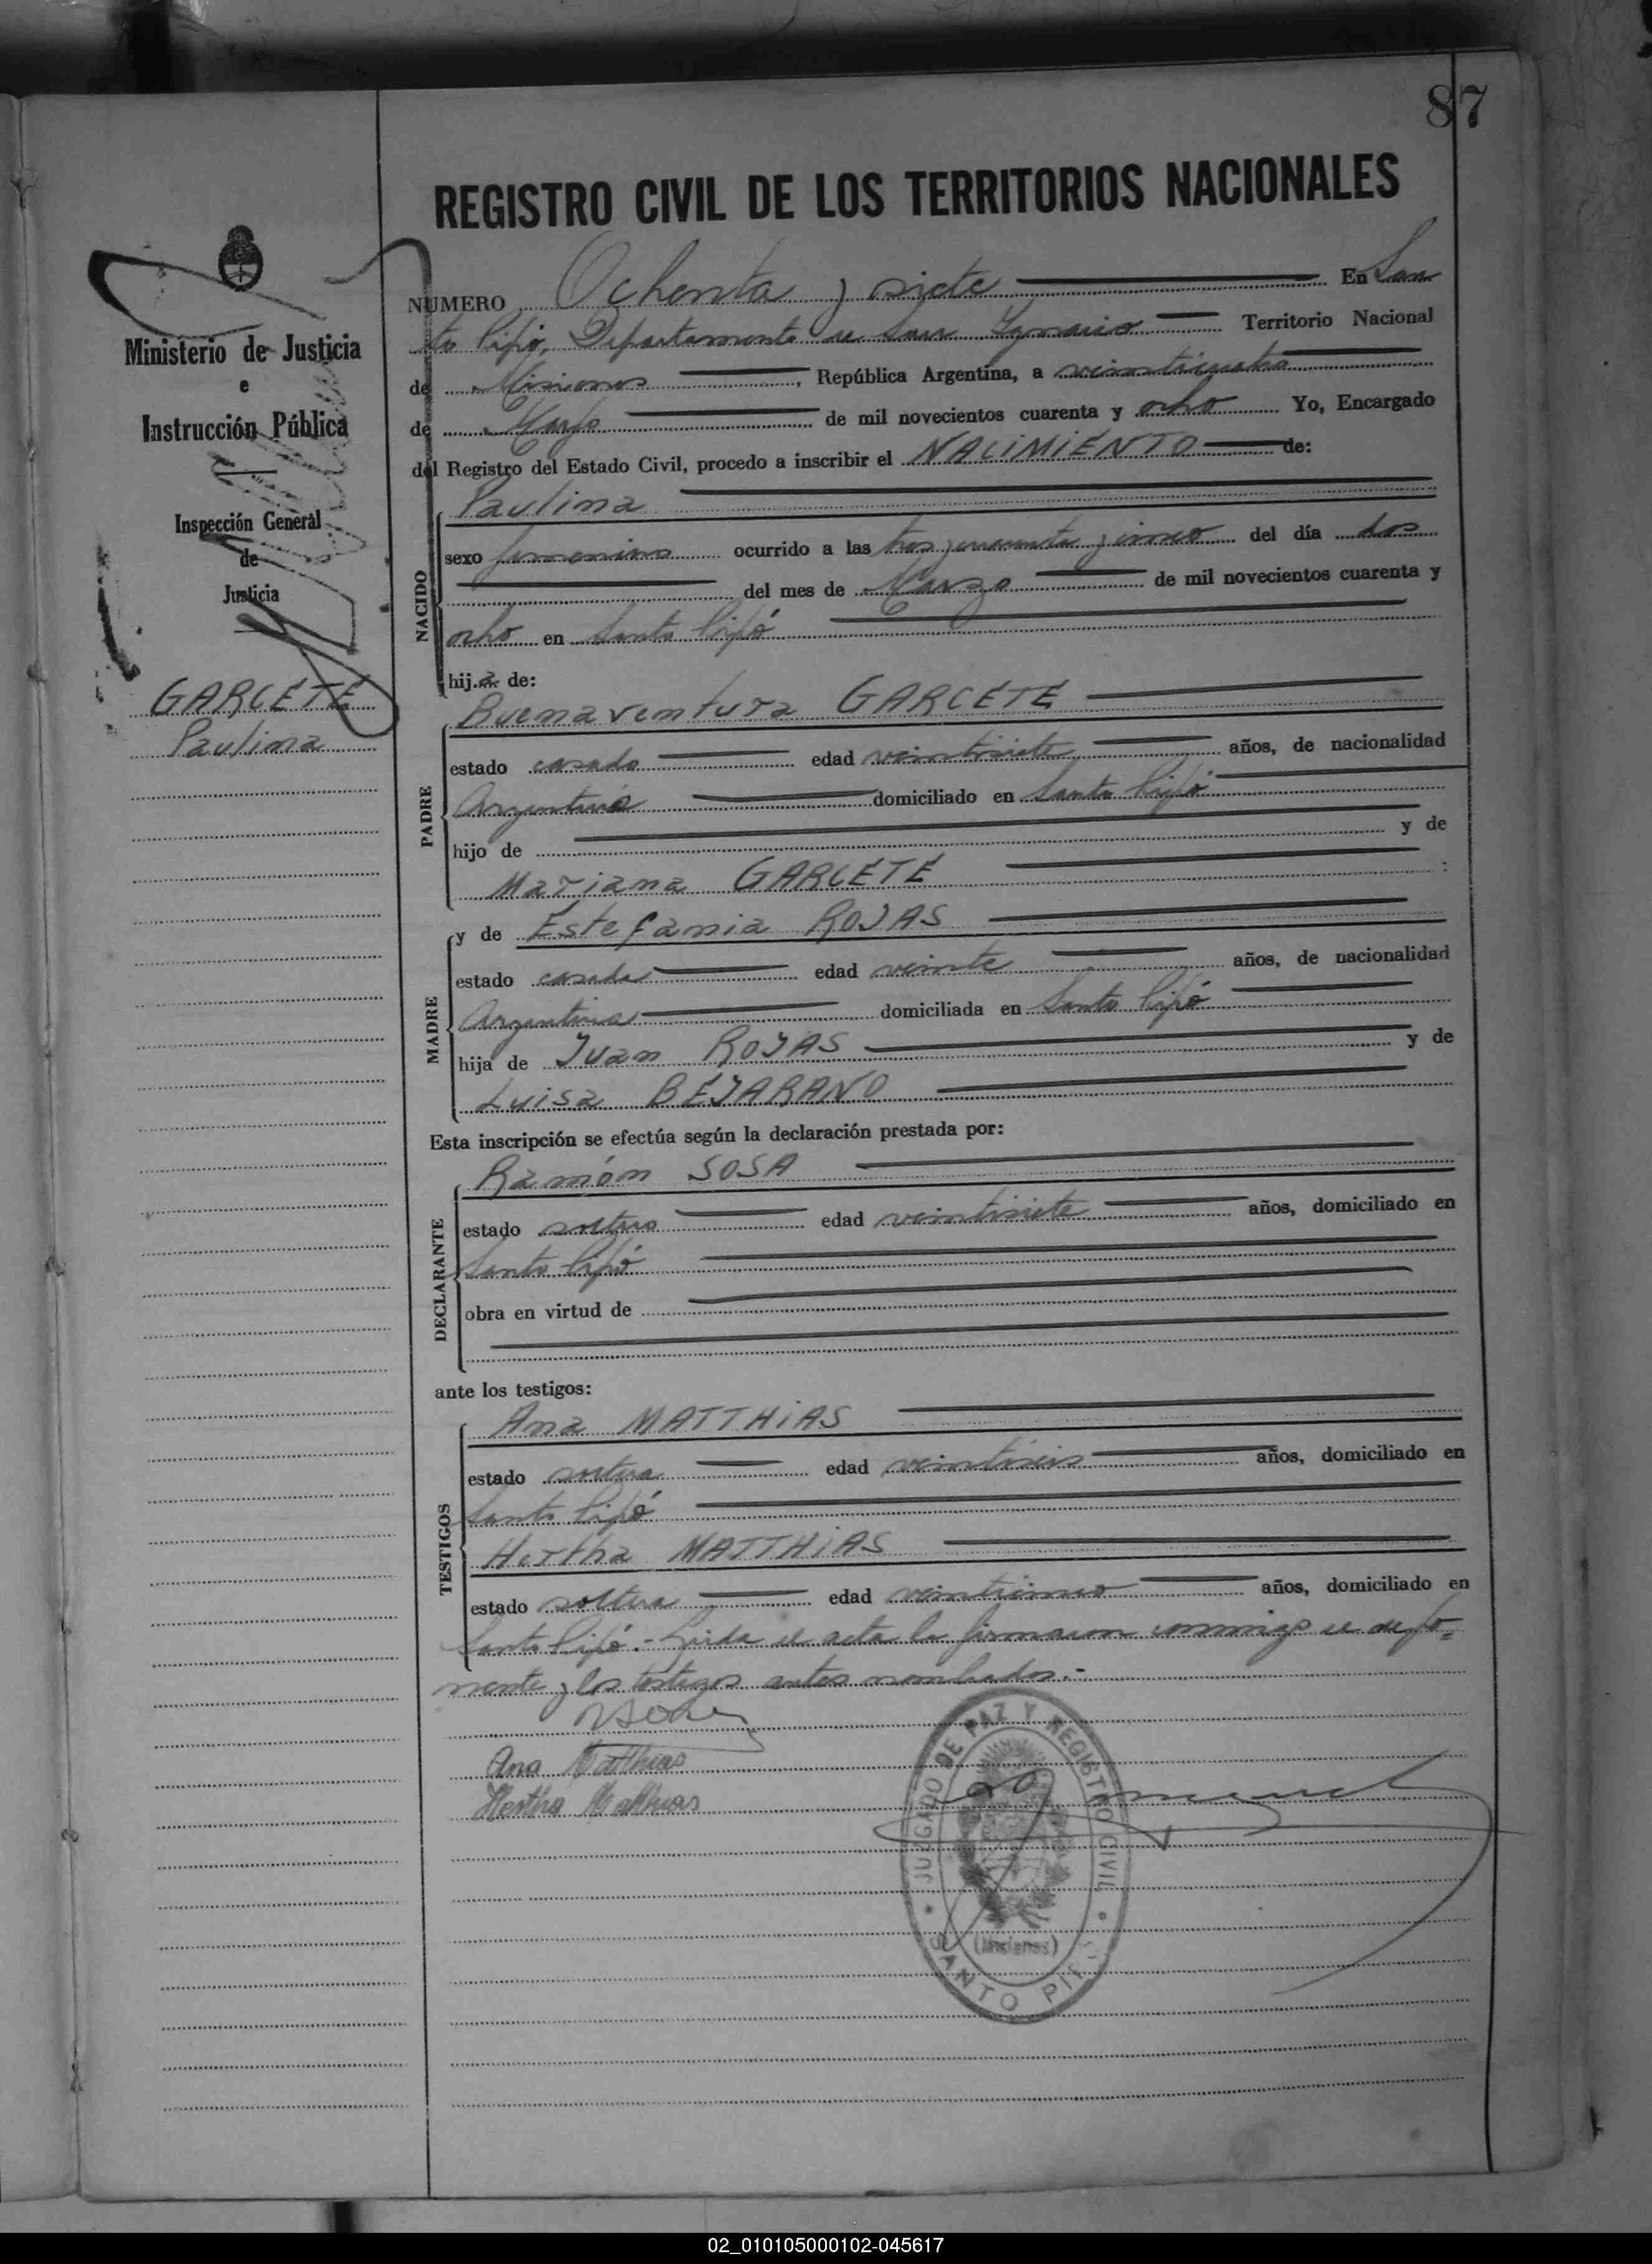 87
REGISTRO CIVIL DE LOS TERRITORIOS NACIONALES
Ministerio de Justicia
e
Instrucción Pública
Inspección General
de
Justicia
GARCETE
Paulina
NUMERO Ochenta y siete En San
to Pipó, Departamento de San Ignacio Territorio Nacional
de Misiones, República Argentina, a veinticuatro
de Marzo de mil novecientos cuarenta y ocho Yo, Encargado
del Registro del Estado Civil, procedo a inscribir el NACIMIENTO de:
NACIDO
Paulina
sexo femenino ocurrido a las tres y cuarenta y cinco del día dos
del mes de Marzo de mil novecientos cuarenta y
ocho en Santo Pipó
hija de:
PADRE
Buenaventura GARCETE
estado casado edad veintisiete años, de nacionalidad
Argentina domiciliado en Santo Pipó
hijo de y de
Mariana GARCETE
MADRE
y de Estefania ROJAS
estado casada edad veinte años, de nacionalidad
Argentina domiciliada en Santo Pipó
hija de Juan ROJAS y de
Luisa BEJARANO
Esta inscripción se efectúa según la declaración prestada por:
DECLARANTE
Ramón SOSA
estado soltero edad veintisiete años, domiciliado en
Santo Pipó
obra en virtud de
ante los testigos:
TESTIGOS
Ana MATTHIAS
estado soltera edad veintiseis años, domiciliado en
Santo Pipó
Hertha MATTHIAS
estado soltera edad veinticinco años, domiciliado en
Santo Pipó.- Leida el acta la firmaron conmigo el depo=
nente y los testigos antes nombrados.-
Ana Matthias
Hertha Matthias
JUZGADO DE PAZ Y REGISTRO CIVIL
(Misiones)
SANTO PIPÓ
02_010105000102-045617